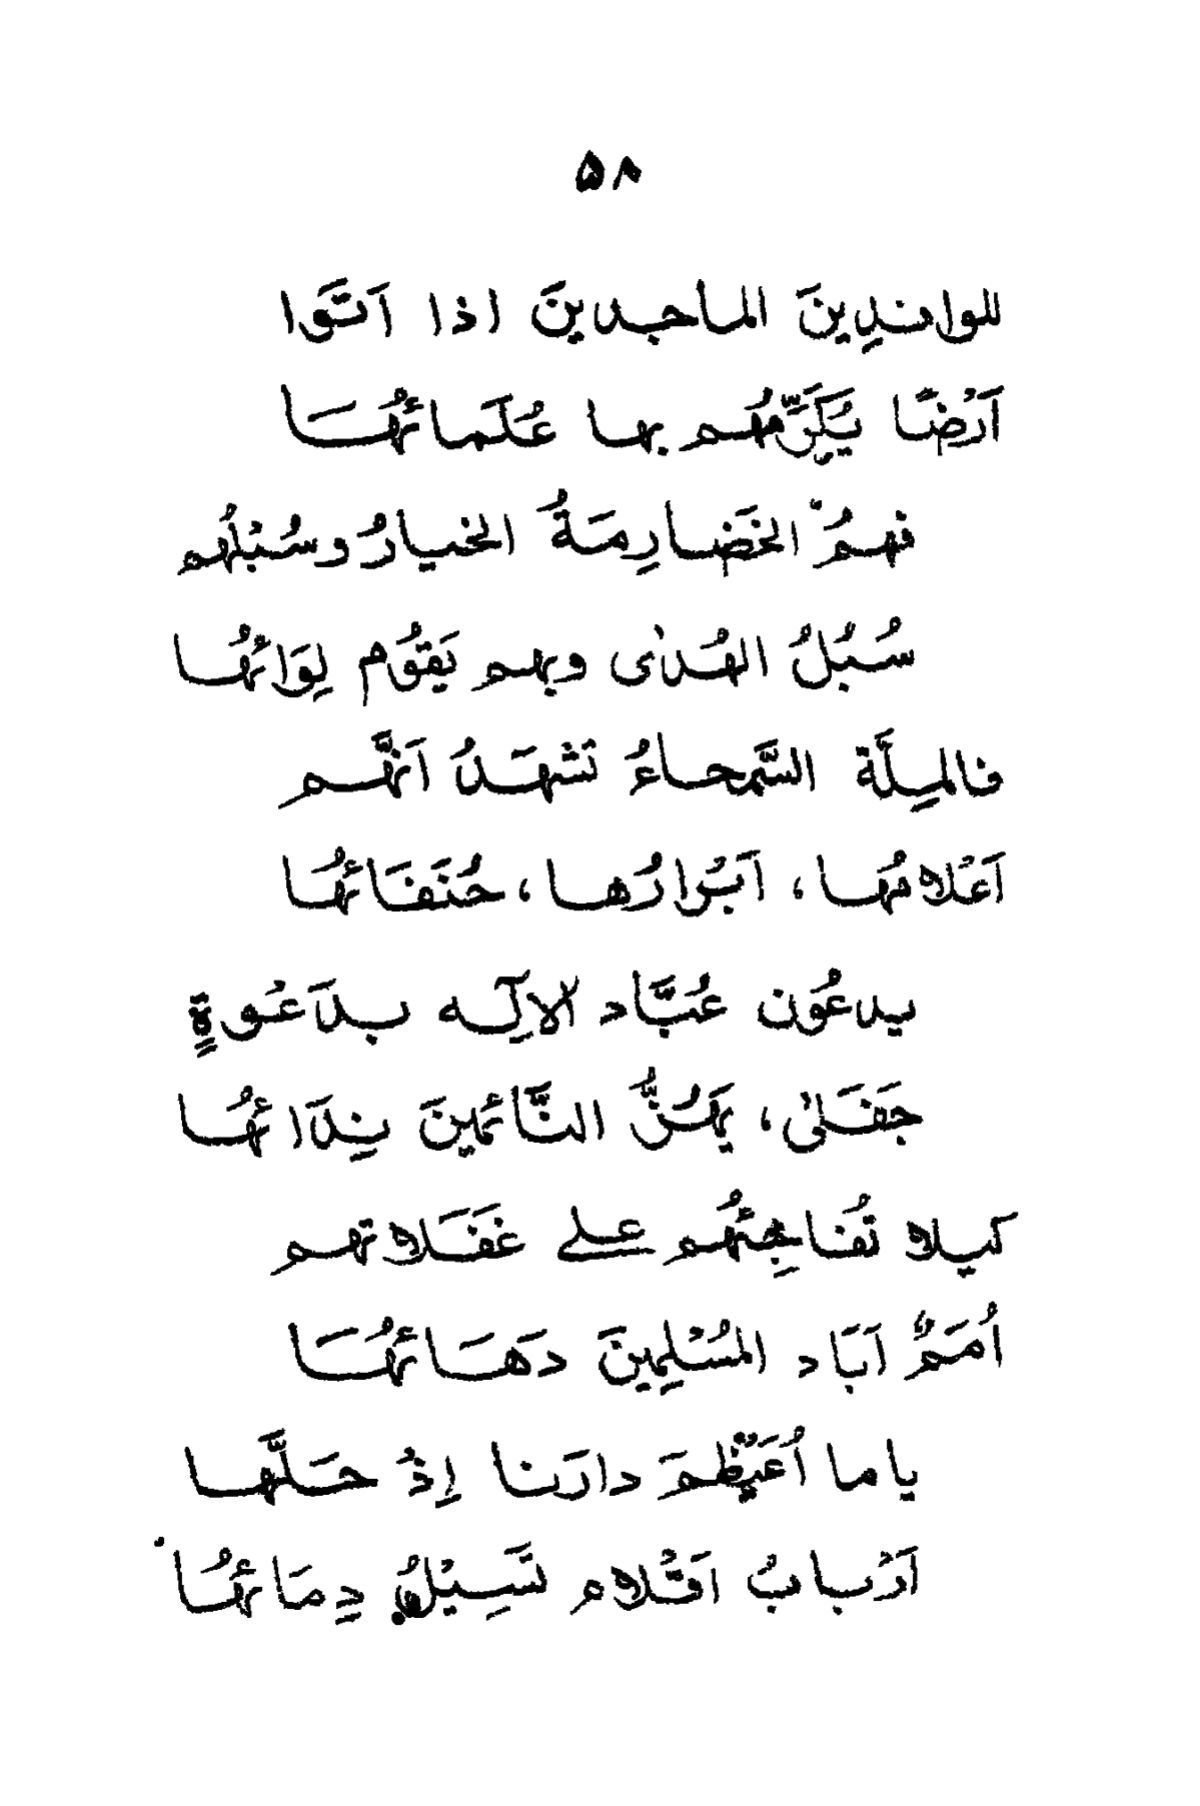 ۵۸
للوافدِينَ الماجدينَ اذا اَتَوا
اَرْضًا يُكَرِّمُهُم بها عُلَمائهُا
فهمُ الخَضارِمَةُ الخيارُ وسُبْلُهُم
سُبُلُ الهُدٰى وبهم يَقوُم لِوَائهُا
فالمِلَّة السَّمحاءُ تَشْهَدُ اَنَّهم
اَعْلامُها، اَبْرارُها، حُنَفَائهُا
يدعُون عُبَّاد الالٓه بدَعْوةٍ
جَفَلىٰ، يَهُزُّ النَّائمينَ نِدَائهُا
كيلا تُفاجِئَهُم على غَفَلاتهم
اُمَمٌ اَبَاد المُسْلِمِينَ دَهَائهُا
ياما اُعَيْظِمَ دارَنا إِذْ حَلَّها
اَرْبابُ اَقْلام تَسِيْلُ دِمَائهُا